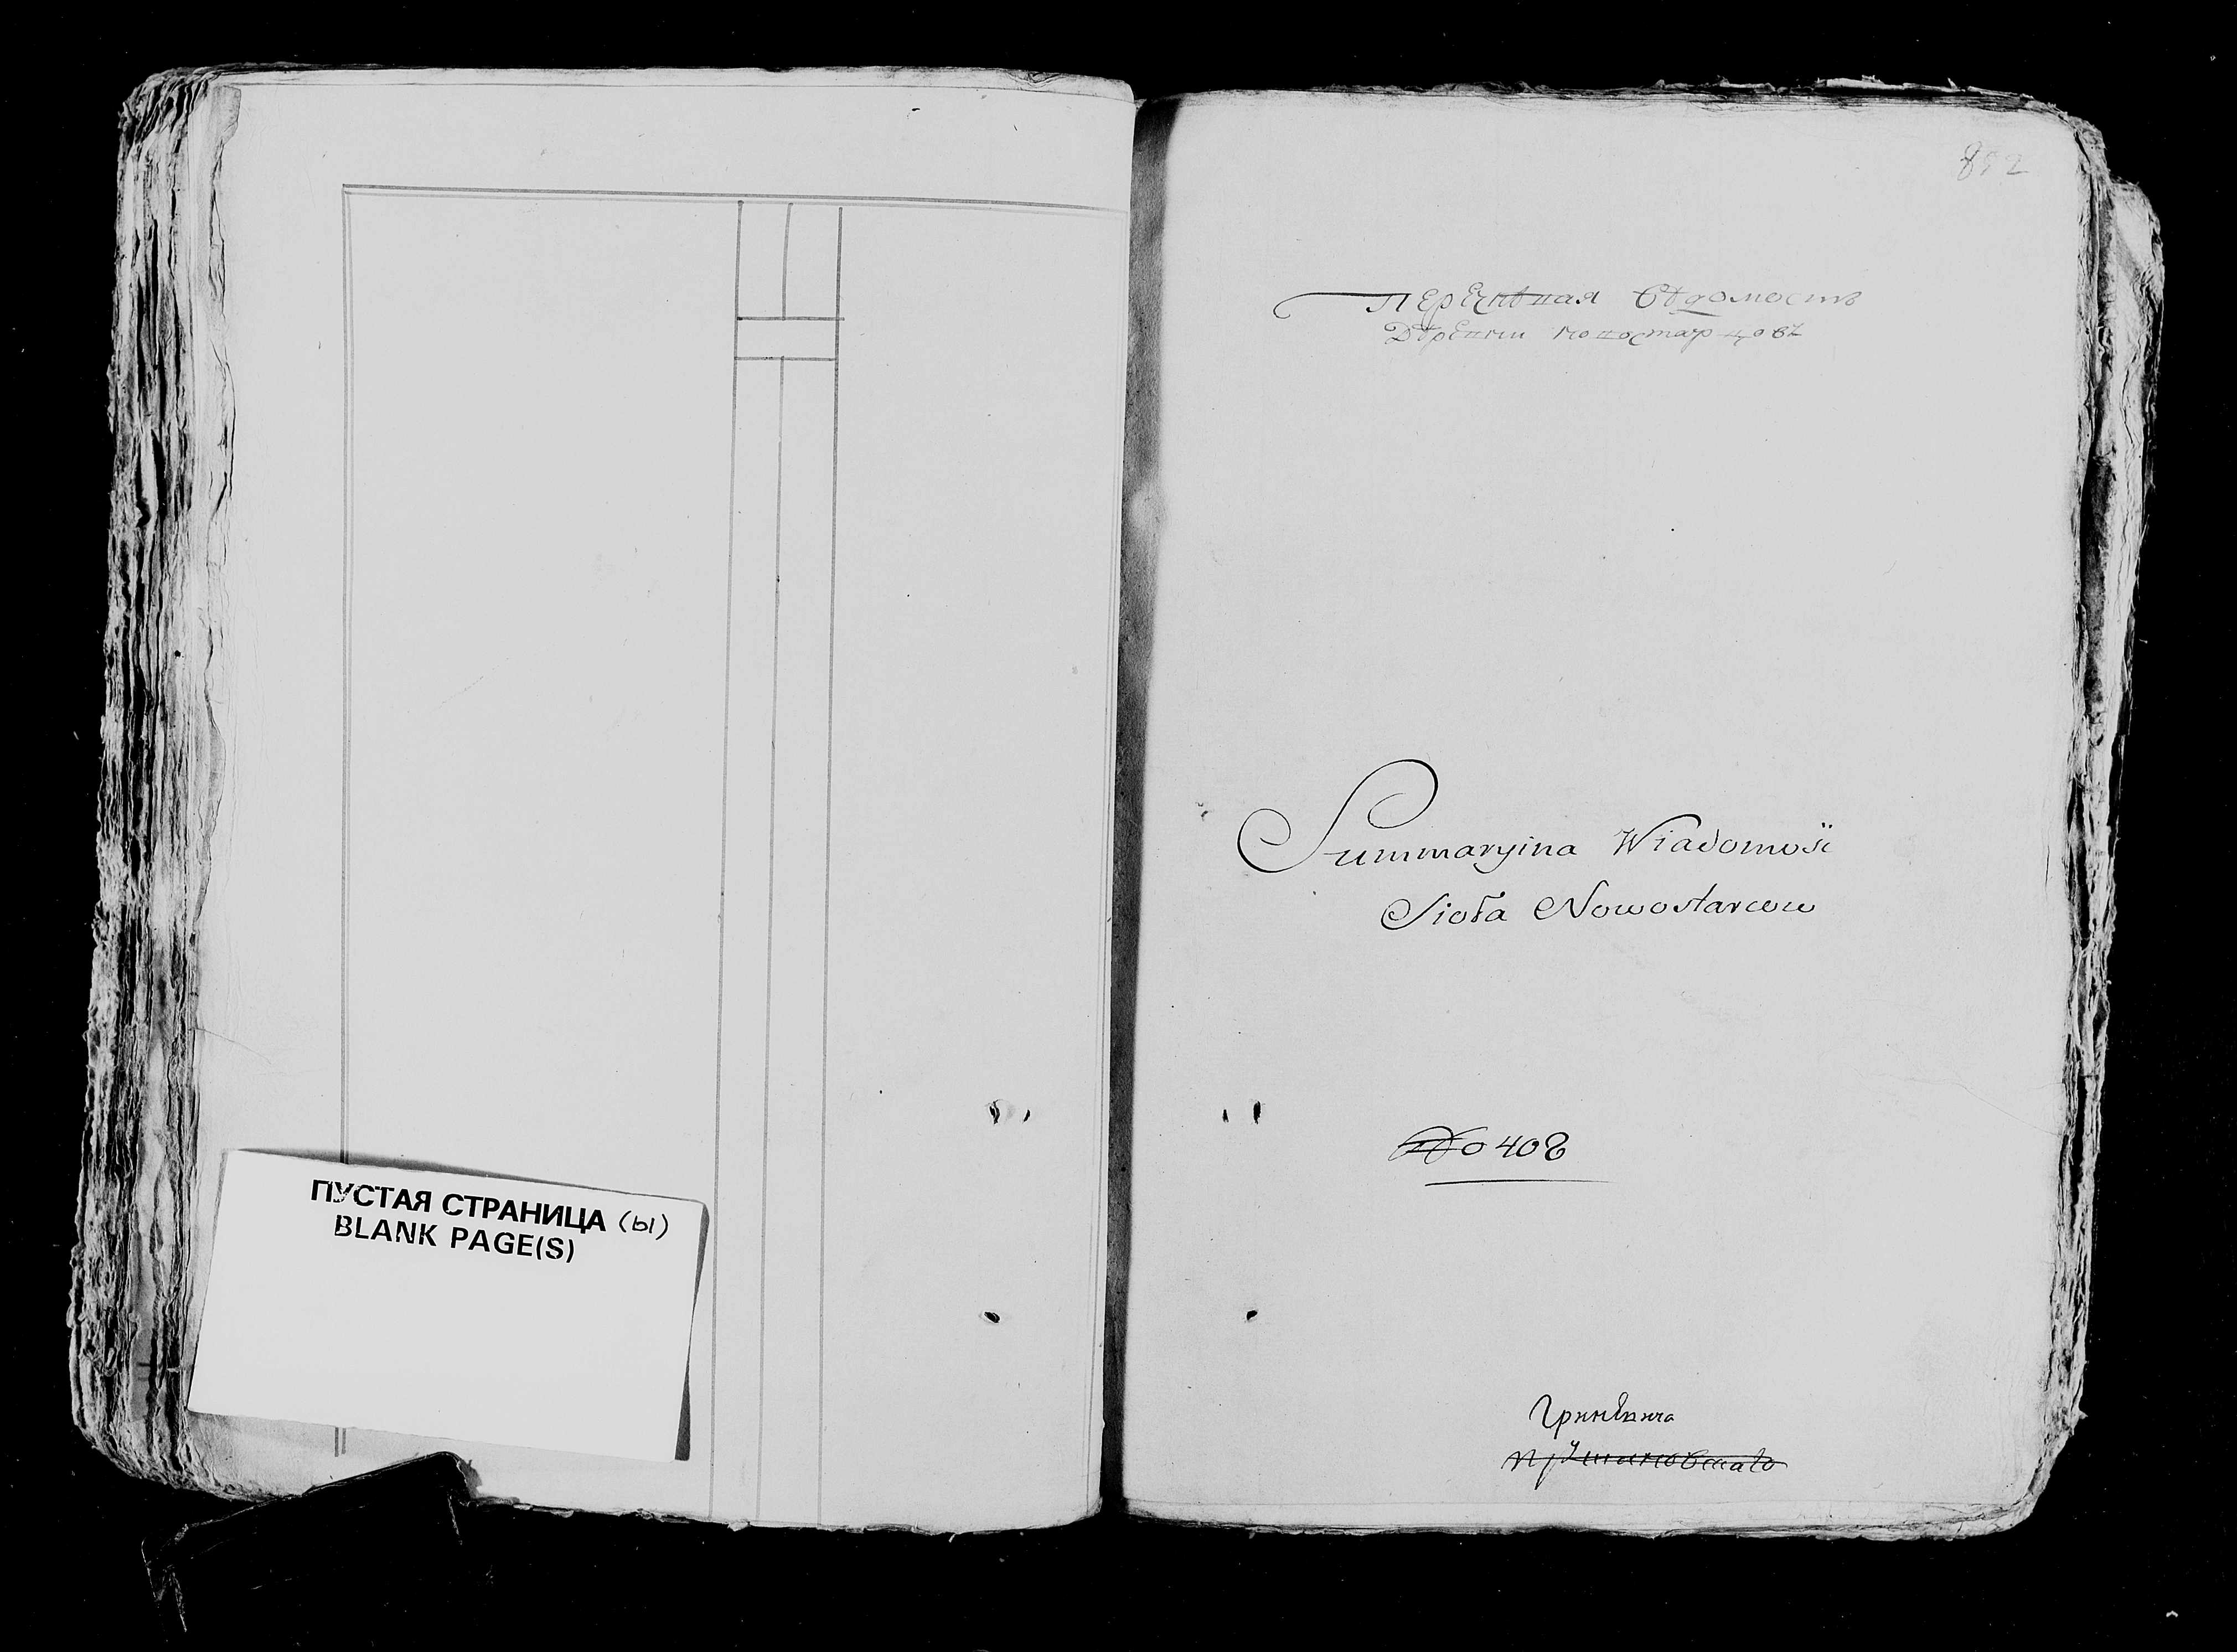 ПУСТАЯ СТРАНИЦА (ы)
BLANK PAGE(S)
Перечневая Ведомость
Деревни новостарцовъ
Summaryina Wiadomość
Sioła Nowostarcow
No 408
Гриневича